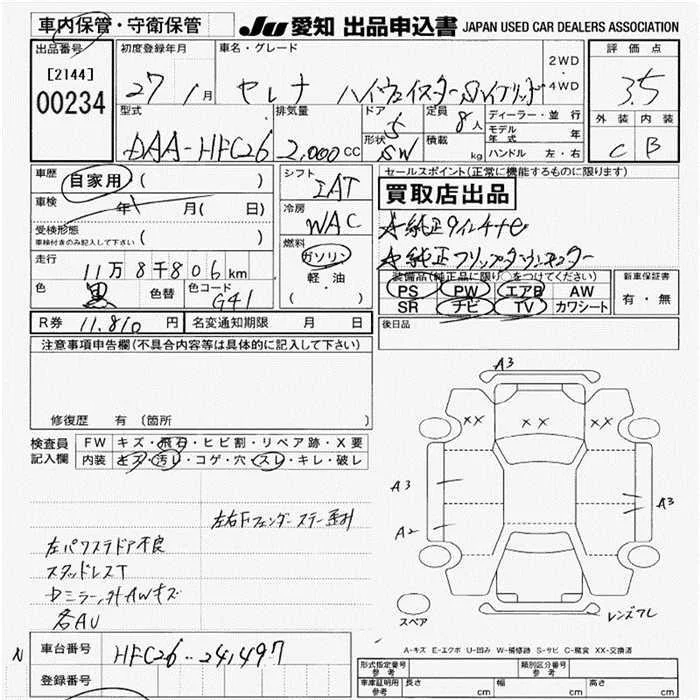 車内保管・守衛保管
JU 愛知 出品申込書 JAPAN USED CAR DEALERS ASSOCIATION
出品番号 初度登録年月 車名・グレード 2WD・4WD 評価点
[2144]
00234
27 1月 セレナ ハイウェイスター Sハイブリッド 3.5
型式 排気量 ドア 5 定員 8人 ディーラー・並行 外装 内装
DAA-HFC26 2,000cc 形状 SW 積載 kg モデル年式 年 C B
ハンドル 左・右
車歴 自家用 ( ) シフト IAT セールスポイント(正常に機能するものに限ります)
買取店出品
車検 年 月( 日) 冷房 WAC
受検形態 ( )
車検付きのみ記入して下さい
燃料 ガソリン 軽・油 ( )
装備品(純正品に限り○をつけてください) 新車保証書
走行 11万8千806km
PS PW エアB AW 有・無
SR ナビ TV カワシート
色 黒 色替 色コード G41
後日品
R券 11,810円 名変通知期限 月 日
注意事項申告欄(不具合内容等は具体的に記入して下さい)
修復歴 有 (箇所 )
検査員記入欄
FW キズ・飛石・ヒビ割・リペア跡・X要
内装 キズ・汚レ・コゲ・穴・スレ・キレ・破レ
A3
XX XX XX
A3 A3
A2
左パワステドア不良
スタッドレスT
ドミラー、外AWキズ
各AU
スペア
レンズワレ
A-キズ E-エクボ U-凹み W-補修跡 S-サビ C-腐食 XX-交換済
N 車台番号 HFC26-241497
登録番号
形式指定番号 参考 類別区分番号 参考
車庫証明用 参考 長さ cm 幅 cm 高さ cm